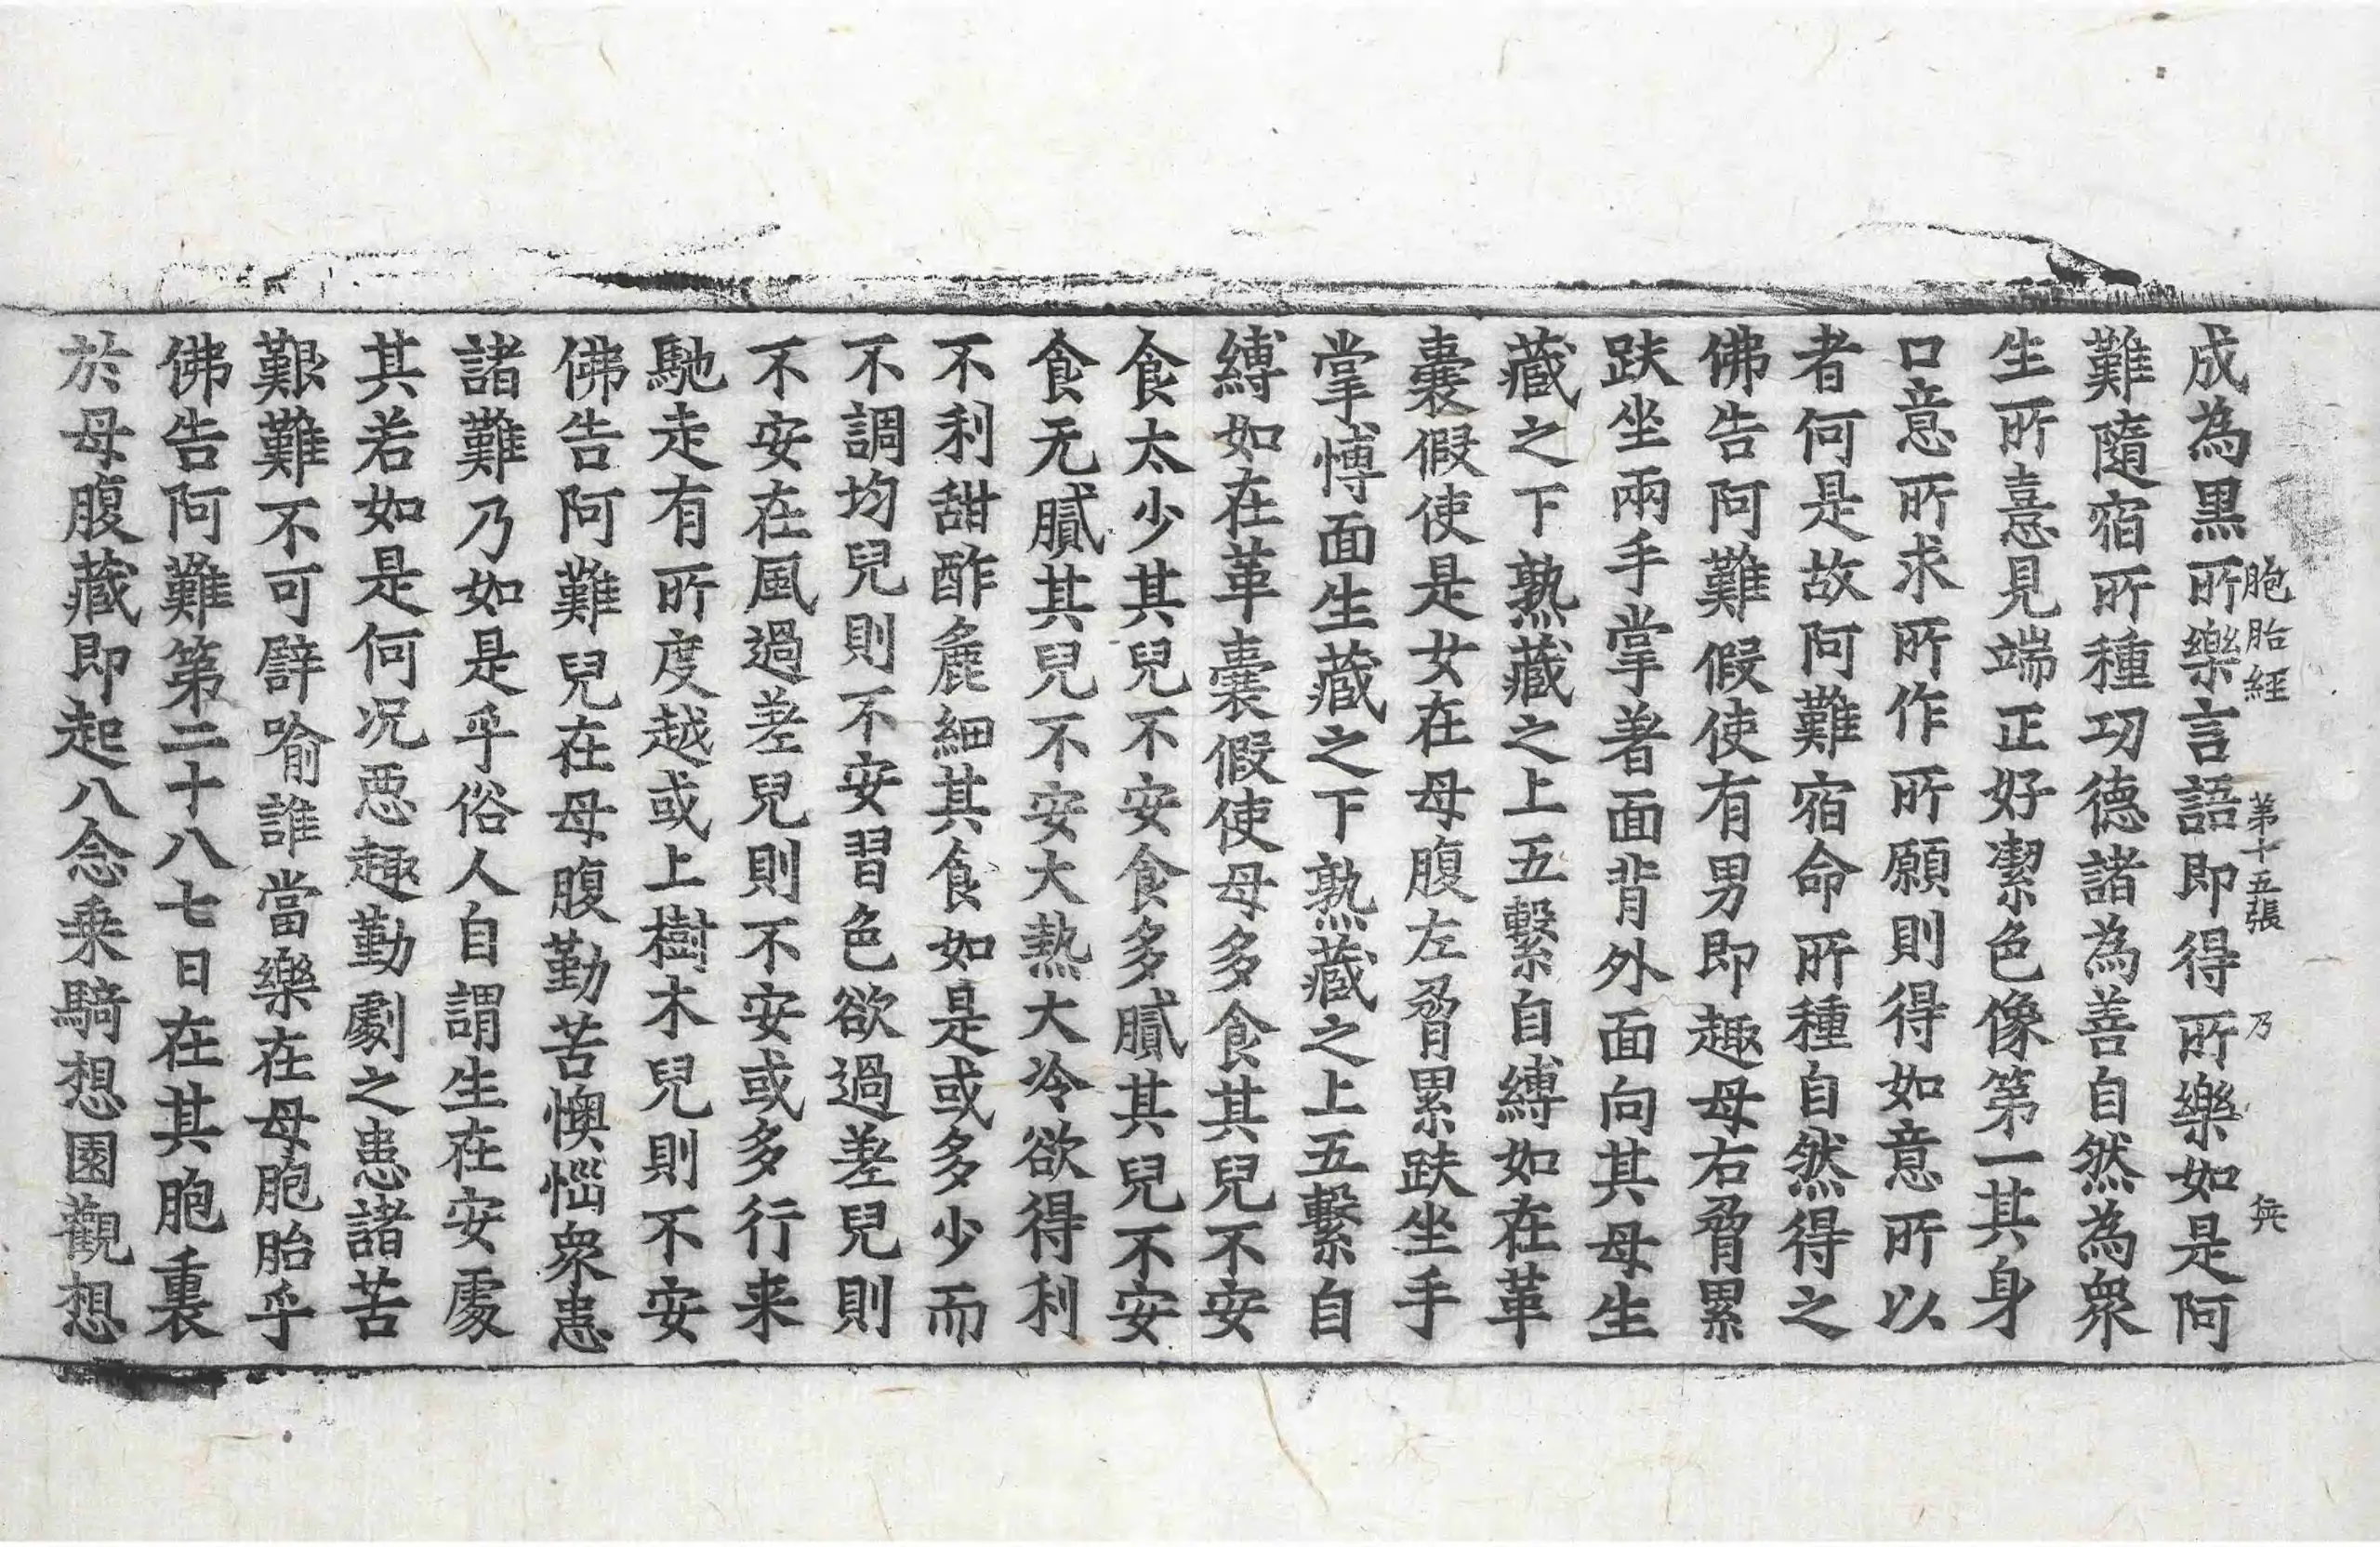 胞胎經 第十五張 乃
成為黒所樂言語即得所樂如是阿
難隨宿所種功德諸為善自然為衆
生所憙見端正好潔色像第一其身
口意所求所作所願則得如意所以
者何是故阿難宿命所種自然得之
佛告阿難假使有男即趣母右脅累
趺坐兩手掌著面背外面向其母生
藏之下熟藏之上五繫自縛如在革
囊假使是女在母腹左脅累趺坐手
掌愽面生藏之下熟藏之上五繫自
縛如在革囊假使母多食其兒不安
食太少其兒不安食多膩其兒不安
食无膩其兒不安大熱大冷欲得利
不利甜酢麁細其食如是或多少而
不調均兒則不安習色欲過差兒則
不安在風過差兒則不安或多行来
馳走有所度越或上樹木兒則不安
佛告阿難兒在母腹勤苦懊惱衆患
諸難乃如是乎俗人自謂生在安處
其若如是何况惡趣勤劇之患諸苦
艱難不可譬喻誰當樂在母胞胎乎
佛告阿難第二十八七日在其胞裏
於母腹藏即起八念乗騎想園觀想